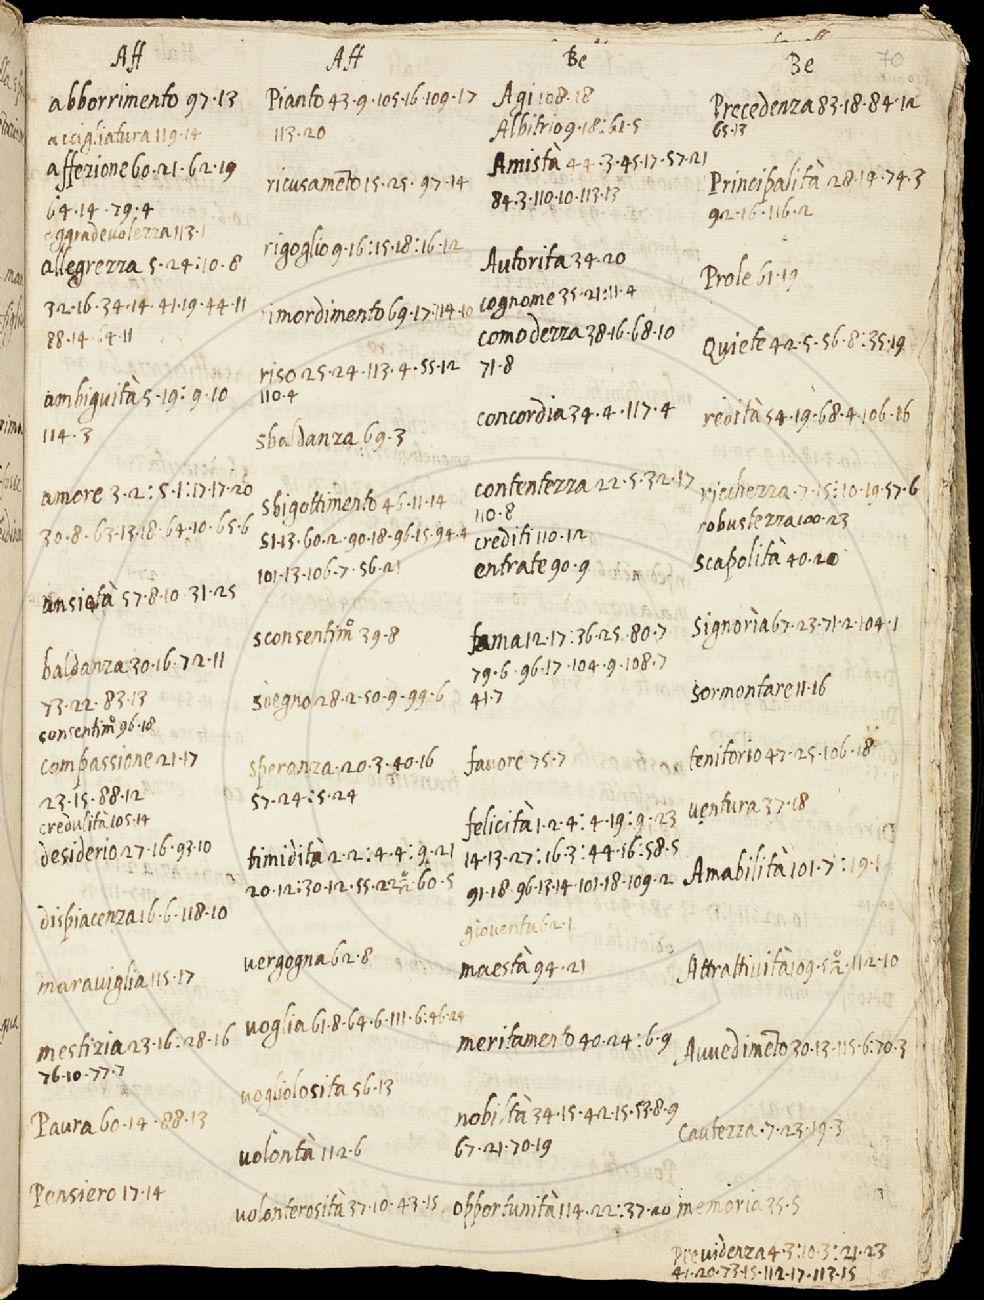 Aff
abborrimento 97·13
accigliatura 119·14
affezione 60·21·62·19
64·14·79·4
aggradevolezza 113·1
allegrezza 5·24:10·8
32·16·34·14·41·19·44·11
88·14·64·11
ambiguità 5·19:9·10
114·3
amore 3·2:5·1:17·17·20
30·8·63·13·18·64·10·65·6
ansietà 57·8·10·31·25
baldanza 30·16·72·11
73·22·83·13
consentimo 96·18
compassione 21·17
23·15·88·12
credulità 105·14
desiderio 27·16·93·10
dispiacenza 16·6·118·10
maraviglia 115·17
mestizia 23·16:28·16
76·10·77·7
Paura 60·14·88·13
Pensiero 17·14
Aff
Pianto 43·9·105·16·109·17
113·20
ricusamēto 15·25·97·14
rigoglio 9·16:15·18:16·12
rimordimento 69·17·114·10
riso 25·24·113·4·55·12
110·4
sbaldanza 69·3
sbigottimento 46·11·14
51·13·60·2·90·18·96·15·94·4
101·13·106·7·56·21
sconsentimo 39·8
sdegno 28·2·50·9·99·6
speranza 20·3·40·16
57·24:5·24
timidità 2·2:4·4:9·21
20·12:30·12·55·22 60·5
vergogna 62·8
voglia 61·8·64·6·111·6:46·24
vogliolosita 56·13
volontà 112·6
volonterosità 37·10·43·15
Be
Agi 108·18
Albitrio 9·18:61·5
Amistà 44·3·45·17·57·21
84·3·110·10·113·13
Autorita 34·20
cognome 35·21:11·4
comodezza 38·16·68·10
71·8
concordia 34·4·117·4
contentezza 22·5·32·17
110·8
crediti 110·12
entrate 90·9
fama 12·17:36·25·80·7
79·6·96·17·104·9·108·7
41·7
favore 75·7
felicità 1·2·4:4·19:9·23
14·13·27:16·3:44·16:58·5
91·18·96·13·14·101·18·109·2
gioventu 62·1
maestà 94·21
meritamento 40·24:6·9
nobiltà 34·15·42·15·53·8·9
67·21·70·19
opportunità 114·22:37·20
Be
70
Precedenza 83·18·84·12
65·13
Principalità 28·19·74·3
92·16·116·2
Prole 61·19
Quiete 42·5·56·8:35·19
redità 54·19·68·4·106·16
ricchezza·7·15:10·19·57·6
robustezza 100·23
scapolità 40·20
Signorìa 67·23·71·2·104·1
Sormontare 11·16
tenitorio 47·25·106·18
ventura 37·18
Amabilità 101·7:19·1
Attrattività 109·5 ·112·10
Avvedimēto 30·13·115·6:70·3
Cautezza·7·23·19·3
memoria 35·5
Previdenza 4·3:10·3:21·23
41·20·73·15·112·17·113·15